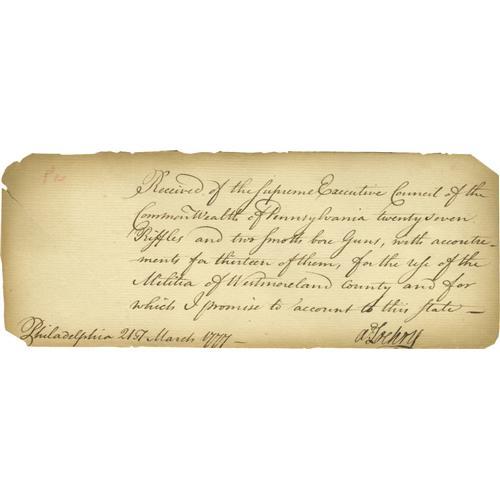 Received of the Supreme Executive Council of the
CommonWealth of Pennsylvania twenty seven
Riffles and two Smoth bore Guns, with accoutre-
ments for thirteen of them, for the use of the
Militia of Westmoreland County and for
which I promise to account to this State —
Philadelphia 21st March 1777 —
A Lochry